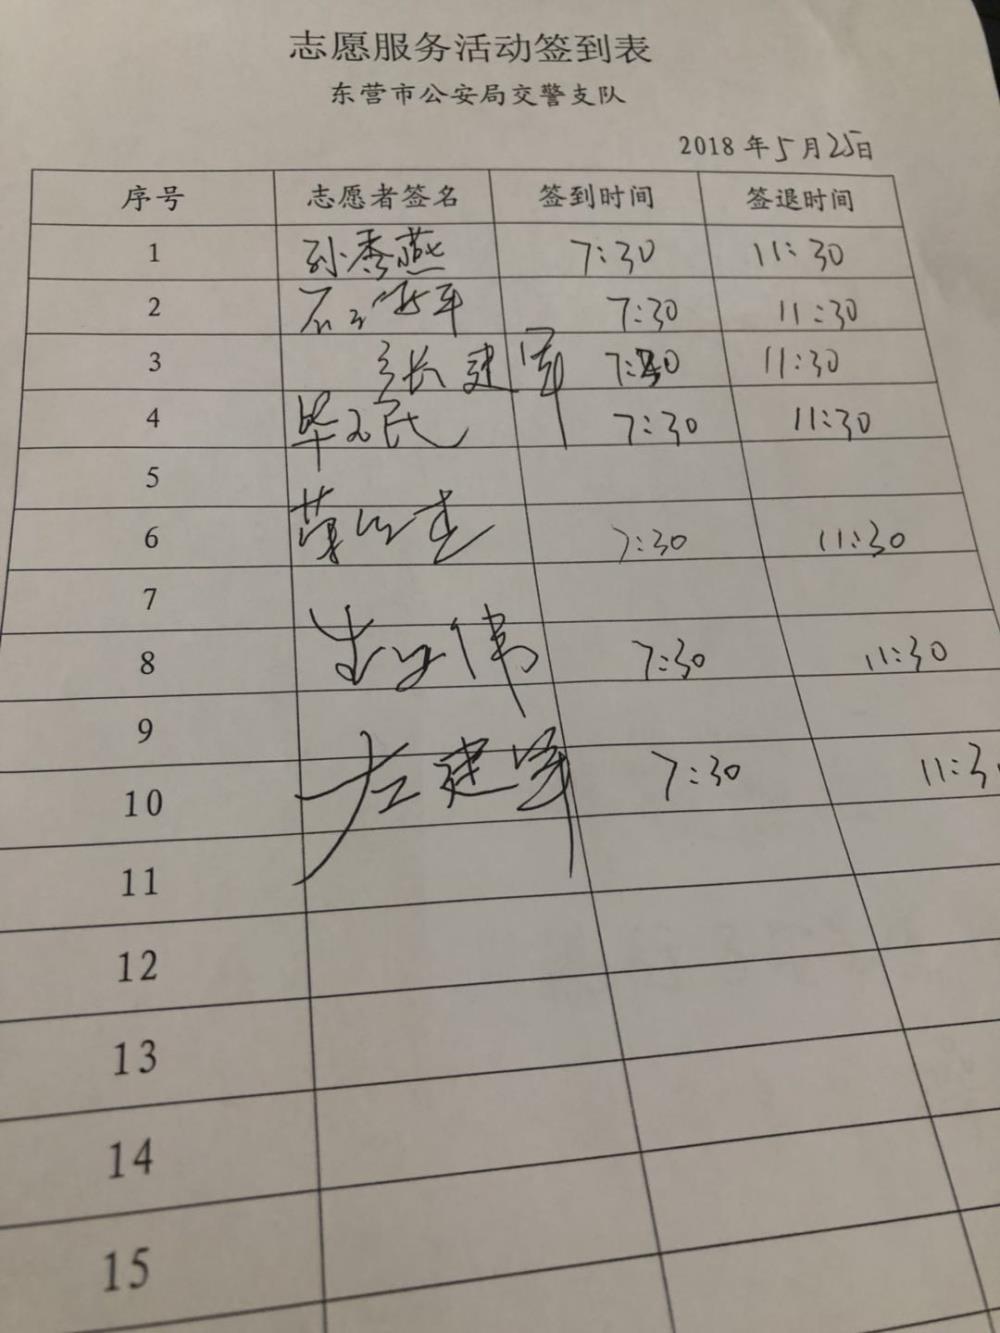 志愿服务活动签到表
东营市公安局交警支队
2018年5月25日
序号 志愿者签名 签到时间 签退时间
1 孙秀燕 7:30 11:30
2 7:30 11:30
3 张建军 11:30
4 毕 民 7:30 11:30
5
6 7:30 11:30
7
8 伟 7:30 11:30
9
10 左建军 7:30 11:3
11
12
13
14
15